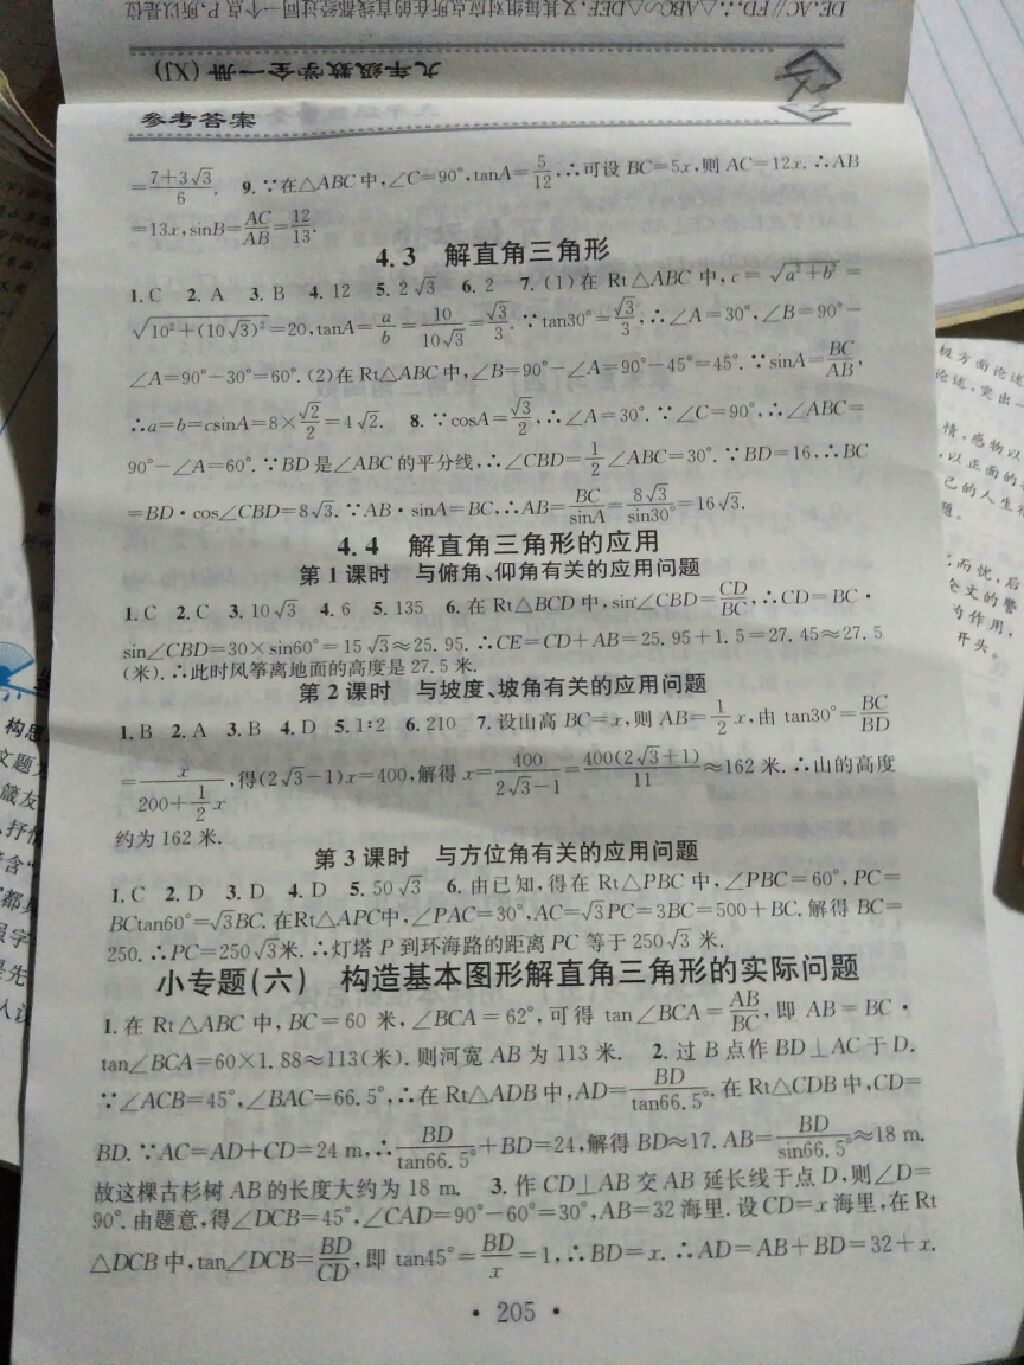 DE,AC∥FD,∴△ABC∽△DEF,又其每组对应点所在的直线都经过同一个点P,所以是位
九年级数学全一册(XJ)
参考答案
=\frac{7+3√3}{6}. 9.∵在△ABC中,∠C=90°,tanA=\frac{5}{12},∴可设BC=5x,则AC=12x.∴AB
=13x,sinB=\frac{AC}{AB}=\frac{12}{13}.
4.3 解直角三角形
1.C 2.A 3.B 4.12 5.2√3 6.2 7.(1)在Rt△ABC中,c=√(a²+b²)=
√(10²+(10√3)²)=20,tanA=\frac{a}{b}=\frac{10}{10√3}=\frac{√3}{3}.∵tan30°=\frac{√3}{3},∴∠A=30°,∠B=90°-
∠A=90°-30°=60°.(2)在Rt△ABC中,∠B=90°-∠A=90°-45°=45°.∵sinA=\frac{BC}{AB},
∴a=b=csinA=8×\frac{√2}{2}=4√2. 8.∵cosA=\frac{√3}{2},∴∠A=30°.∵∠C=90°,∴∠ABC=
90°-∠A=60°.∵BD是∠ABC的平分线,∴∠CBD=\frac{1}{2}∠ABC=30°.∵BD=16,∴BC
=BD·cos∠CBD=8√3.∵AB·sinA=BC,∴AB=\frac{BC}{sinA}=\frac{8√3}{sin30°}=16√3.
4.4 解直角三角形的应用
第1课时 与俯角、仰角有关的应用问题
1.C 2.C 3.10√3 4.6 5.135 6.在Rt△BCD中,sin∠CBD=\frac{CD}{BC},∴CD=BC·
sin∠CBD=30×sin60°=15√3≈25.95.∴CE=CD+AB=25.95+1.5=27.45≈27.5
(米).∴此时风筝离地面的高度是27.5米.
第2课时 与坡度、坡角有关的应用问题
1.B 2.A 3.B 4.D 5.1∶2 6.210 7.设山高BC=x,则AB=\frac{1}{2}x,由tan30°=\frac{BC}{BD}
=\frac{x}{200+\frac{1}{2}x},得(2√3-1)x=400,解得x=\frac{400}{2√3-1}=\frac{400(2√3+1)}{11}≈162米.∴山的高度
约为162米.
第3课时 与方位角有关的应用问题
1.C 2.D 3.D 4.D 5.50√3 6.由已知,得在Rt△PBC中,∠PBC=60°,PC=
BCtan60°=√3BC.在Rt△APC中,∠PAC=30°,AC=√3PC=3BC=500+BC.解得BC=
250.∴PC=250√3米.∴灯塔P到环海路的距离PC等于250√3米.
小专题(六) 构造基本图形解直角三角形的实际问题
1.在Rt△ABC中,BC=60米,∠BCA=62°,可得tan∠BCA=\frac{AB}{BC},即AB=BC·
tan∠BCA=60×1.88≈113(米).则河宽AB为113米. 2.过B点作BD⊥AC于D.
∵∠ACB=45°,∠BAC=66.5°,∴在Rt△ADB中,AD=\frac{BD}{tan66.5°}.在Rt△CDB中,CD=
BD.∵AC=AD+CD=24m,∴\frac{BD}{tan66.5°}+BD=24,解得BD≈17.AB=\frac{BD}{sin66.5°}≈18m.
故这棵古杉树AB的长度大约为18m. 3.作CD⊥AB交AB延长线于点D,则∠D=
90°.由题意,得∠DCB=45°,∠CAD=90°-60°=30°,AB=32海里.设CD=x海里,在Rt
△DCB中,tan∠DCB=\frac{BD}{CD},即tan45°=\frac{BD}{x}=1,∴BD=x.∴AD=AB+BD=32+x.
·205·
极方面论述
论述,突出一
情,感物以
,以正面的
己的人生
题。
而忧,后
全文的警
的作用,
开头。
构思
文题
箴友